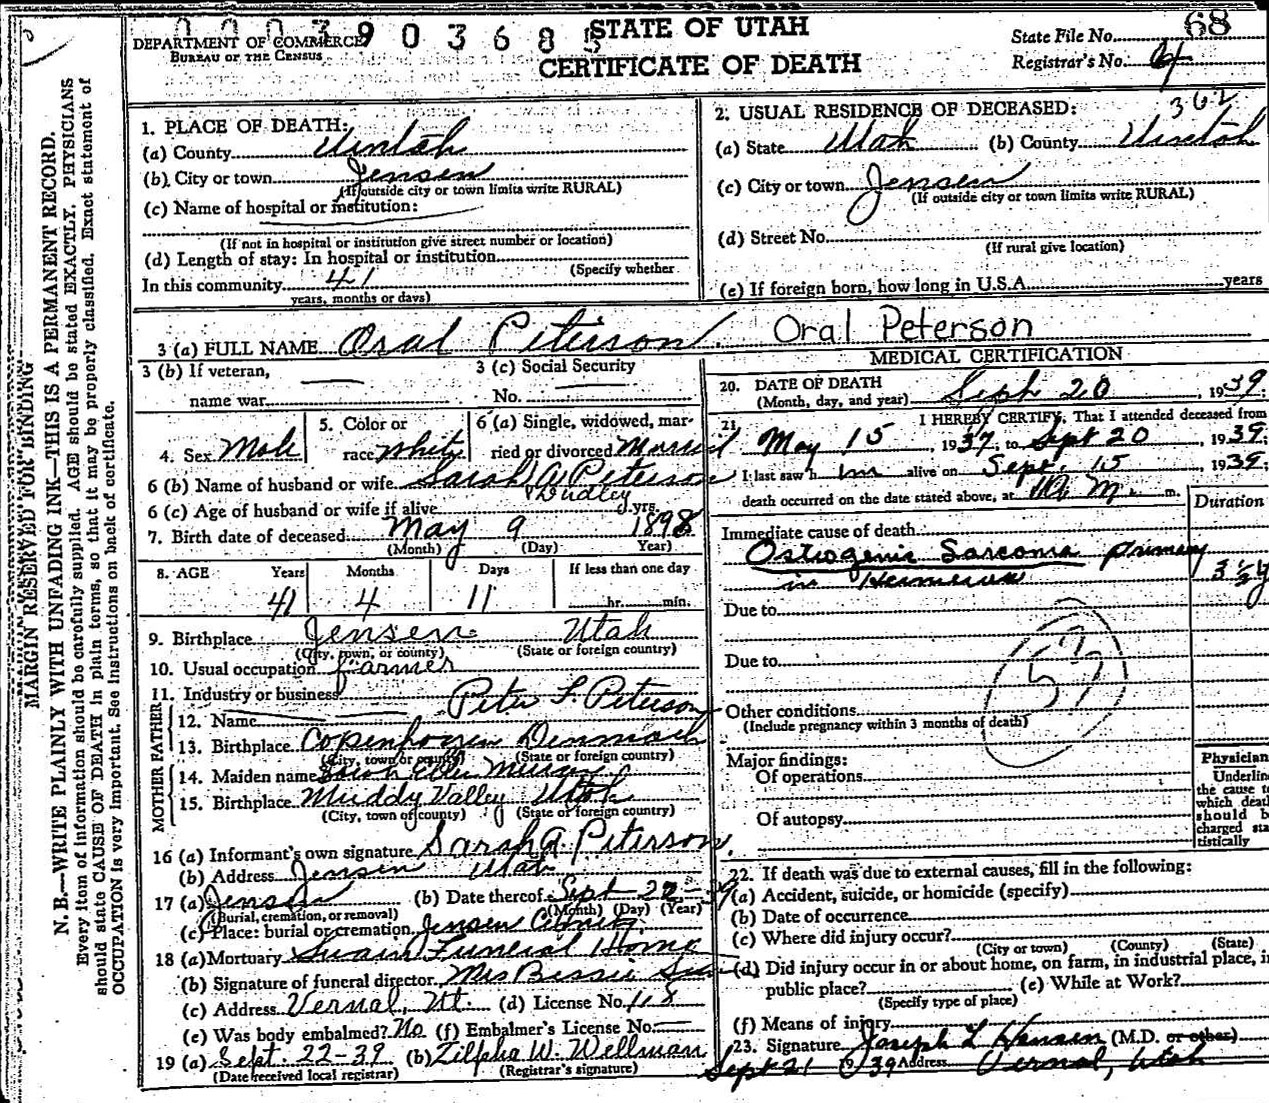 0003903685
STATE OF UTAH
CERTIFICATE OF DEATH
DEPARTMENT OF COMMERCE
BUREAU OF THE CENSUS
State File No. 68
Registrar's No. 4
MARGIN RESERVED FOR BINDING
N. B.—WRITE PLAINLY WITH UNFADING INK—THIS IS A PERMANENT RECORD.
Every item of information should be carefully supplied. AGE should be stated EXACTLY. PHYSICIANS
should state CAUSE OF DEATH in plain terms, so that it may be properly classified. Exact statement of
OCCUPATION is very important. See instructions on back of certificate.
1. PLACE OF DEATH:
(a) County Uintah
(b) City or town Jensen
(If outside city or town limits write RURAL)
(c) Name of hospital or institution:
(If not in hospital or institution give street number or location)
(d) Length of stay: In hospital or institution
(Specify whether
In this community 41
years, months or days)
2. USUAL RESIDENCE OF DECEASED: 362
(a) State Utah (b) County Uintah
(c) City or town Jensen
(If outside city or town limits write RURAL)
(d) Street No.
(If rural give location)
(e) If foreign born, how long in U.S.A. years
3 (a) FULL NAME Oral Peterson. Oral Peterson
3 (b) If veteran,
name war
3 (c) Social Security
No.
4. Sex Male
5. Color or
race White
6 (a) Single, widowed, mar-
ried or divorced Married
6 (b) Name of husband or wife Sarah A Peterson
Dudley
6 (c) Age of husband or wife if alive yrs.
7. Birth date of deceased May 9 1898
(Month) (Day) Year)
8. AGE Years Months Days If less than one day
41 4 11 hr. min.
9. Birthplace Jensen Utah
(City, town, or county) (State or foreign country)
10. Usual occupation Farmer
11. Industry or business
FATHER
12. Name Peter F. Peterson
13. Birthplace Copenhagen Denmark
(City, town or county) (State or foreign country)
MOTHER
14. Maiden name Sarah Ellen
15. Birthplace Muddy Valley Utah
(City, town of county) (State or foreign country)
16 (a) Informant's own signature Sarah A. Peterson.
(b) Address Jensen Utah
17 (a) Jensen (b) Date thereof Sept 22-39
(Burial, cremation, or removal) (Month) (Day) (Year)
(c) Place: burial or cremation Jensen
18 (a) Mortuary Swain Funeral Home
(b) Signature of funeral director Mrs Bessie
(c) Address Vernal, Ut. (d) License No. 118
(e) Was body embalmed? No (f) Embalmer's License No.
19 (a) Sept. 22-39 (b) Zilpha W. Wellman
(Date received local registrar) (Registrar's signature)
MEDICAL CERTIFICATION
20. DATE OF DEATH
(Month, day, and year) Sept 20, 1939.
21. I HEREBY CERTIFY, That I attended deceased from
May 15, 1937, to Sept 20, 1939;
I last saw him alive on Sept. 15, 1939;
death occurred on the date stated above, at M. m.
Duration
Immediate cause of death
Osteogenic Sarcoma primary
in Humerus 3 1/2 y
Due to
Due to
Other conditions
(Include pregnancy within 3 months of death)
Major findings:
Of operations
Of autopsy
Physician
Underlin
the cause to
which deat
should b
charged sta
tistically
22. If death was due to external causes, fill in the following:
(a) Accident, suicide, or homicide (specify)
(b) Date of occurrence
(c) Where did injury occur?
(City or town) (County) (State)
(d) Did injury occur in or about home, on farm, in industrial place, in
public place? (e) While at Work?
(Specify type of place)
(f) Means of injury
23. Signature Joseph L Hansen (M.D. or other)
Sept 21 1939 Address Vernal, Utah